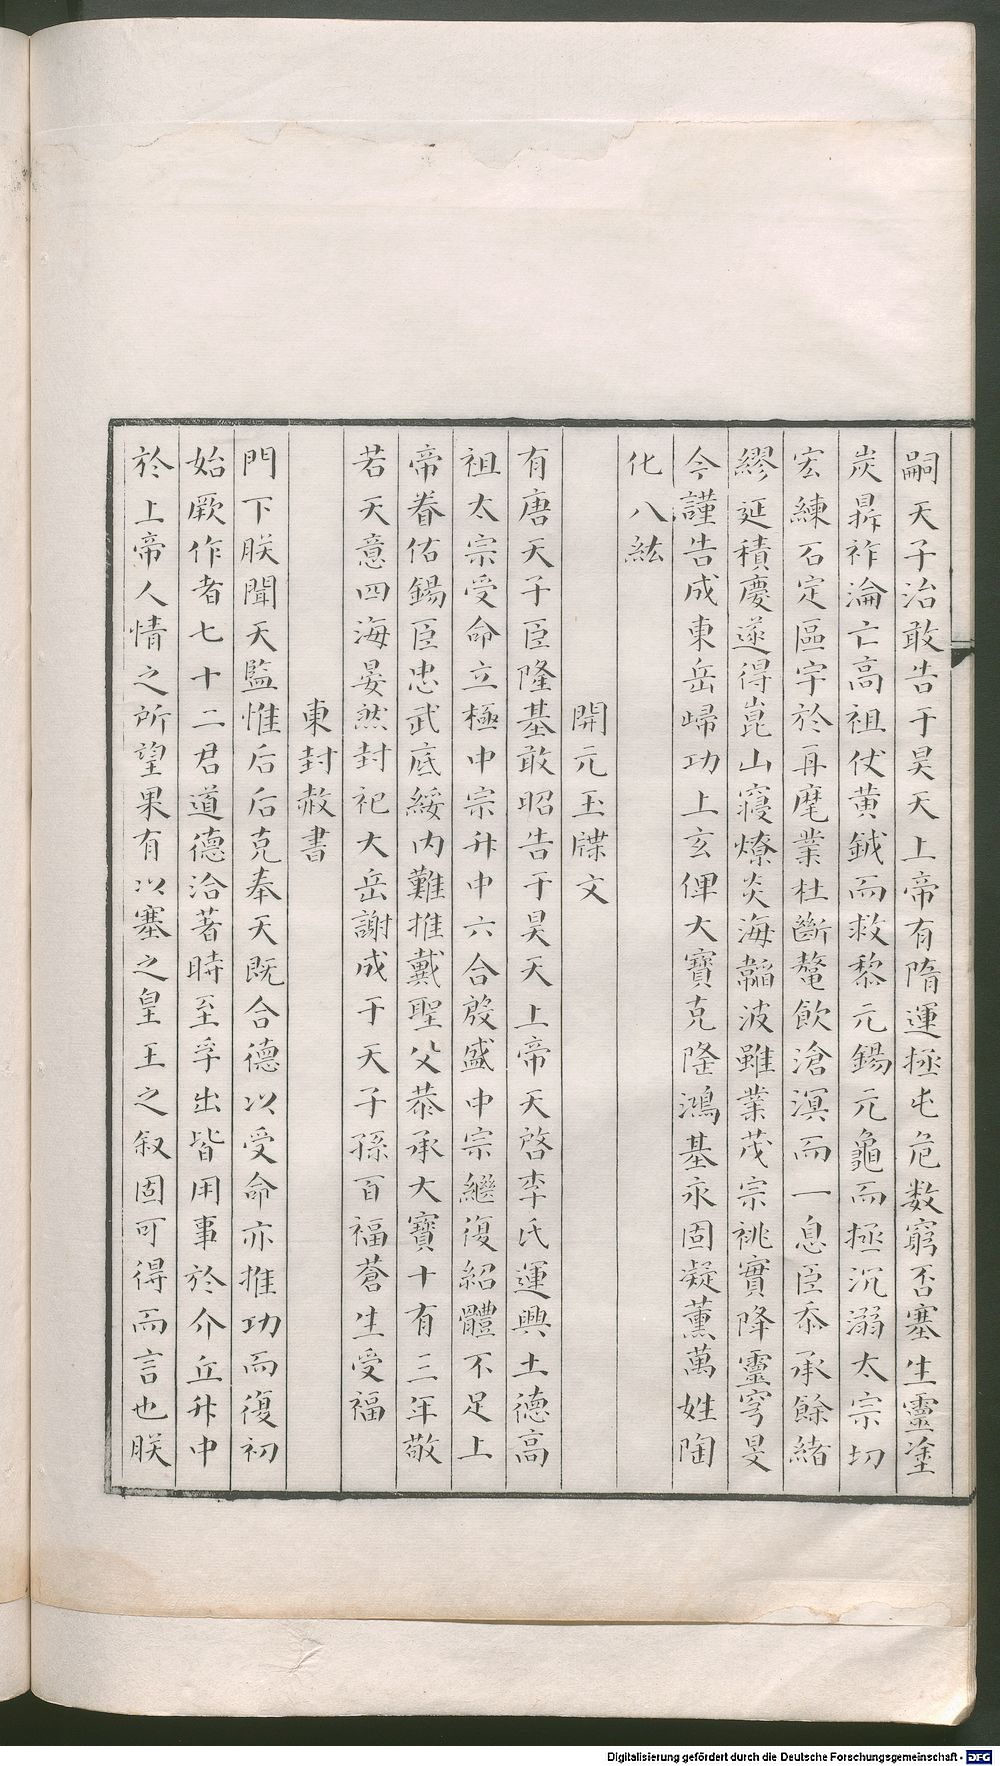 嗣天子治敢告于昊天上帝有隋運拯屯危数窮否塞生靈塗
炭鼎祚淪亡高祖仗黄鉞而救黎元錫元龜而拯沉溺太宗切
宏練石定區宇於再麾業杜斷鼇飲滄溟而一息臣忝承餘緒
繆延積慶遂得崑山寢燎炎海韜波雖業茂宗祧實降靈穹旻
今謹告成東岳歸功上玄俾大寶克隆鴻基永固凝薰萬姓陶
化八紘
開元玉牒文
有唐天子臣隆基敢昭告于昊天上帝天啓李氏運興土德高
祖太宗受命立極中宗升中六合殷盛中宗繼復紹體不足上
帝眷佑錫臣忠武底綏内難推戴聖父恭承大寶十有三年敬
若天意四海晏然封祀大岳謝成于天子孫百福蒼生受福
東封赦書
門下朕聞天監惟后后克奉天既合德以受命亦推功而復初
始厥作者七十二君道德洽著時至孚出皆用事於介丘升中
於上帝人情之所望果有以塞之皇王之叙固可得而言也朕
Digitalisierung gefördert durch die Deutsche Forschungsgemeinschaft - DFG